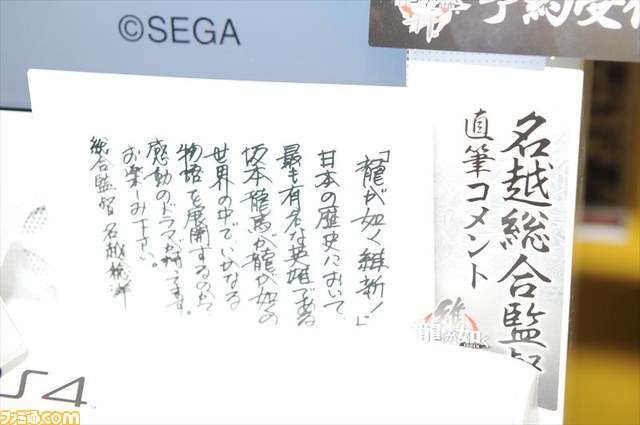 ©SEGA
予約受
名越総合監督
直筆コメント
「龍が如く 維新!」
日本の歴史において、
最も有名な英雄である
坂本龍馬が龍が如くの
世界の中で、いかなる
物語を展開するのか?
感動のドラマが待ってます。
お楽しみ下さい。
総合監督 名越稔洋
維新
龍が如く
PS4
ファミ通.com